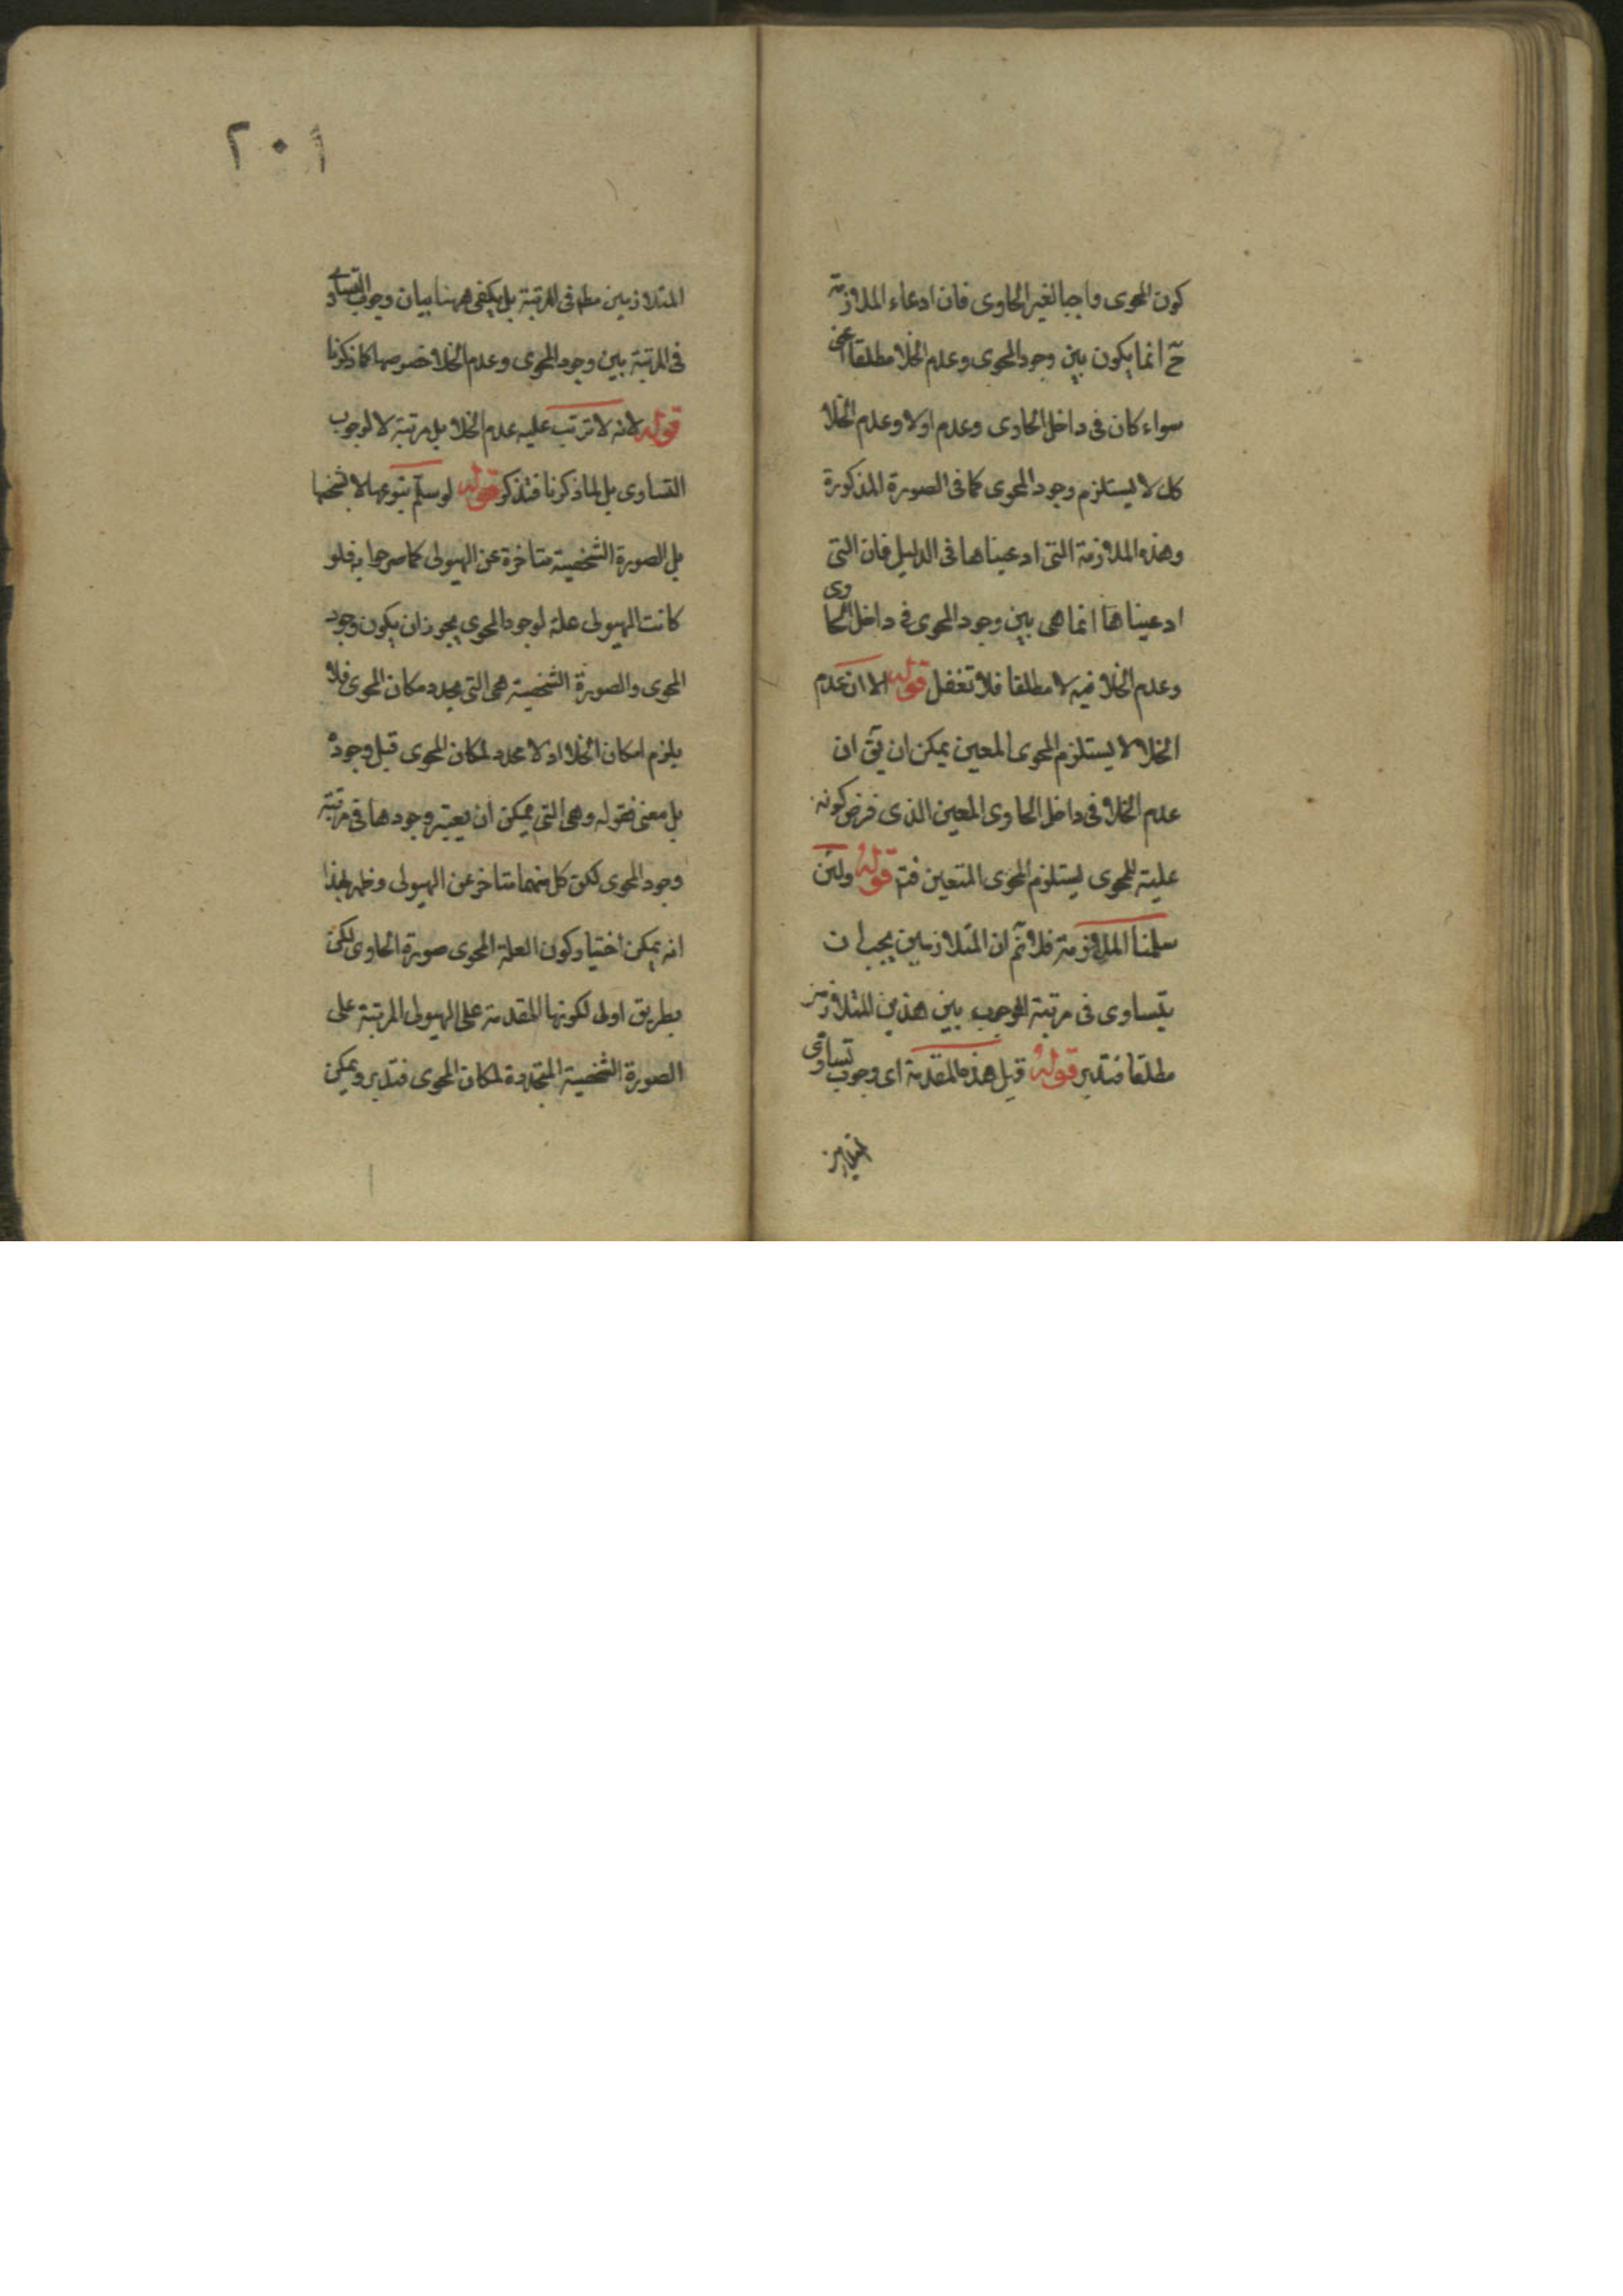 كون المحوى واجبا لغير الحاوى فان ادعاء الملازمة
ح انما يكون بين وجود المحوى وعدم الخلا مطلقا اعنى
سواء كان فى داخل الحاوى وعدم اولا وعدم الخلا
كل لا يستلزم وجود المحوى كما فى الصورة المذكورة
وهذه الملازمة التى ادعيناها فى الدليل فان التى
ادعيناها انما هى بين وجود المحوى فى داخل الحاوى
وعدم الخلا فيه لا مطلقا فلا تغفل قوله الا ان عدم
الخلا لا يستلزم المحوى المعين يمكن ان يق ان
عدم الخلا فى داخل الحاوى المعين الذى فرض كونه
علية للمحوى يستلزم المحوى المتعين فتم قوله ولئن
سلمنا الملازمة فلا نم ان المتلازمين يجب ان
يتساوى فى مرتبة الوجوب بين هذين المتلازمين
مطلقا فتدبر قوله قبل هذه المقدمة اى وجوب تساوى
٢٠١
المتلازمين مطلقا فى المرتبة بل يكفى ههنا بيان وجوب التساوى
فى المرتبة بين وجود المحوى وعدم الخلا خصوصها كما ذكرنا
قوله لانه لا ترتب عليه عدم الخلا بل مرتبة لا لوجوب
التساوى بل لما ذكرنا فتذكر قوله لو سلم بنوعها لا بشخصها
بل الصورة الشخصية متاخرة عن الهيولى كما صرحوا به فلو
كانت الهيولى علة لوجود المحوى يجوز ان يكون وجود
المحوى والصورة الشخصية هى التى يحدد مكان المحوى فلا
يلزم امكان الخلا اذ لا محدد لمكان المحوى قبل وجوده
بل معنى فقوله وهى التى يمكن ان يعتبر وجودها فى مرتبة
وجود المحوى لكن كل منهما متاخر عن الهيولى وظهر بهذا
انه يمكن اختيار كون العلة المحوى صورة الحاوى لكن
بطريق اولى لكونها المقدمة على الهيولى المرتبة على
الصورة الشخصية المتحددة لمكان المحوى فتدبر ويمكن